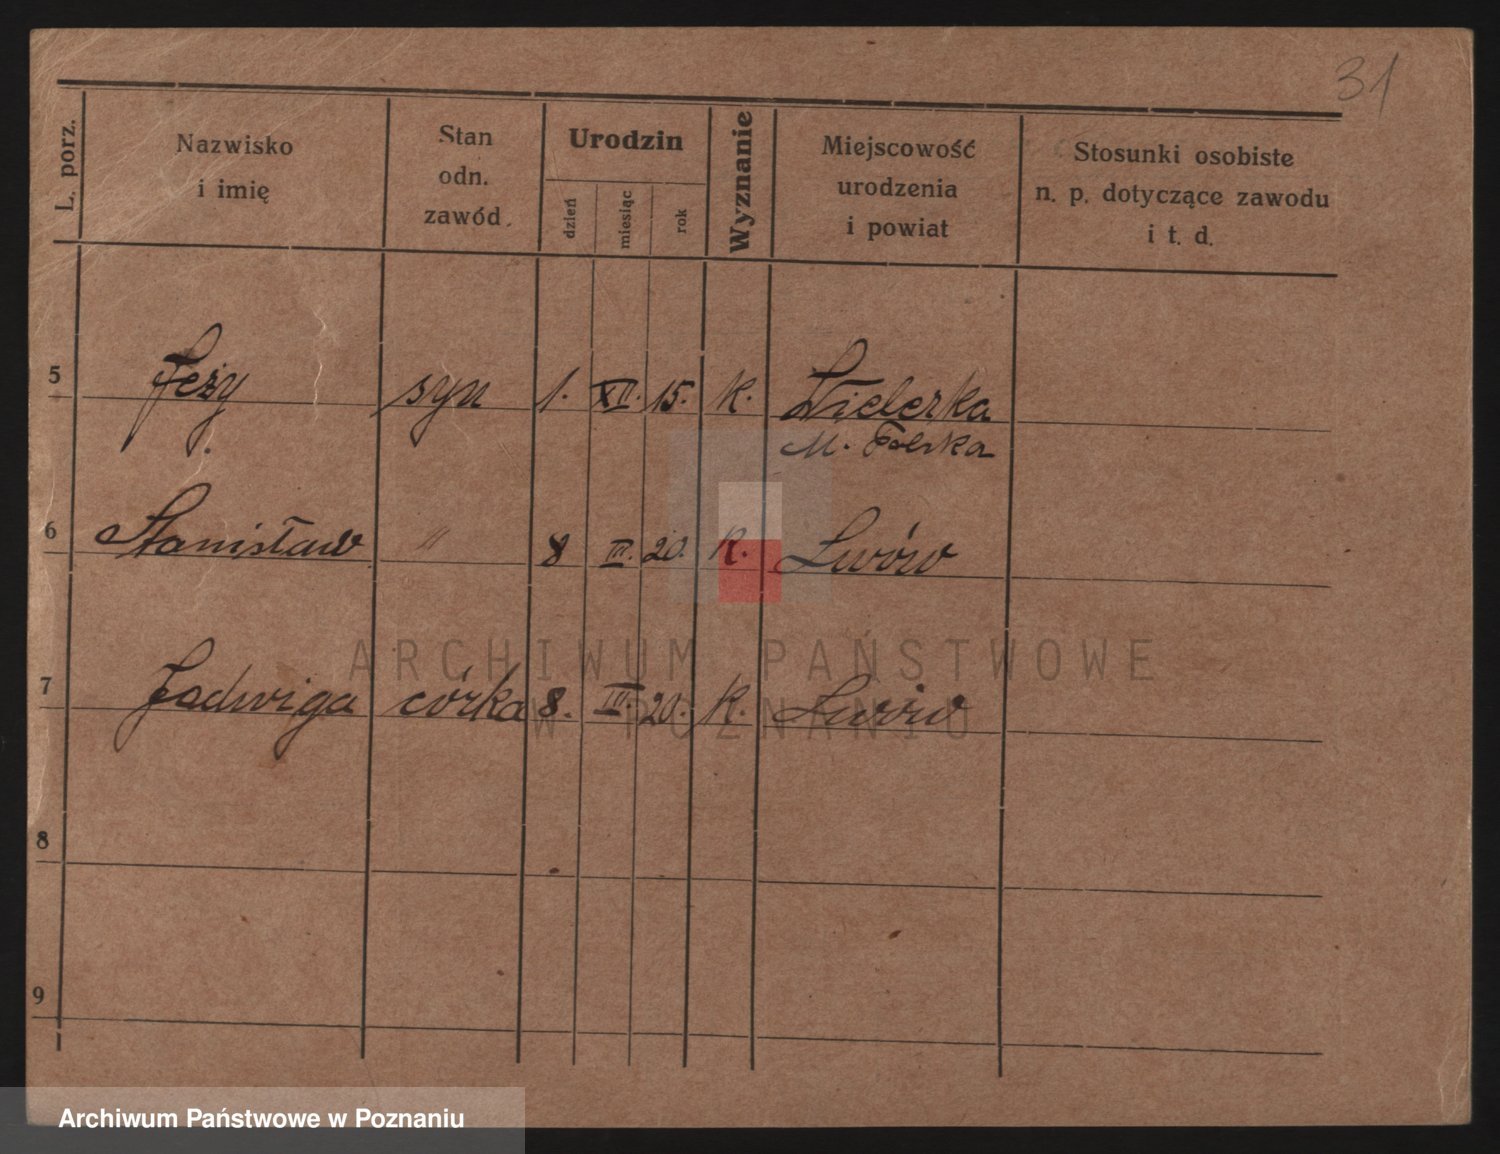 31
L. porz.
Nazwisko
i imię
Stan
odn.
zawód.
Urodzin
dzień
miesiąc
rok
Wyznanie
Miejscowość
urodzenia
i powiat
Stosunki osobiste
n. p. dotyczące zawodu
i t. d.
5 Jeży syn 1. XII. 15. K.
M. Polska
6 Stanisław " 8 III. 20. K. Lwów
7 Jadwiga córka 8. III. 20. K. Lwów
8
9
ARCHIWUM PAŃSTWOWE
W POZNANIU
Archiwum Państwowe w Poznaniu